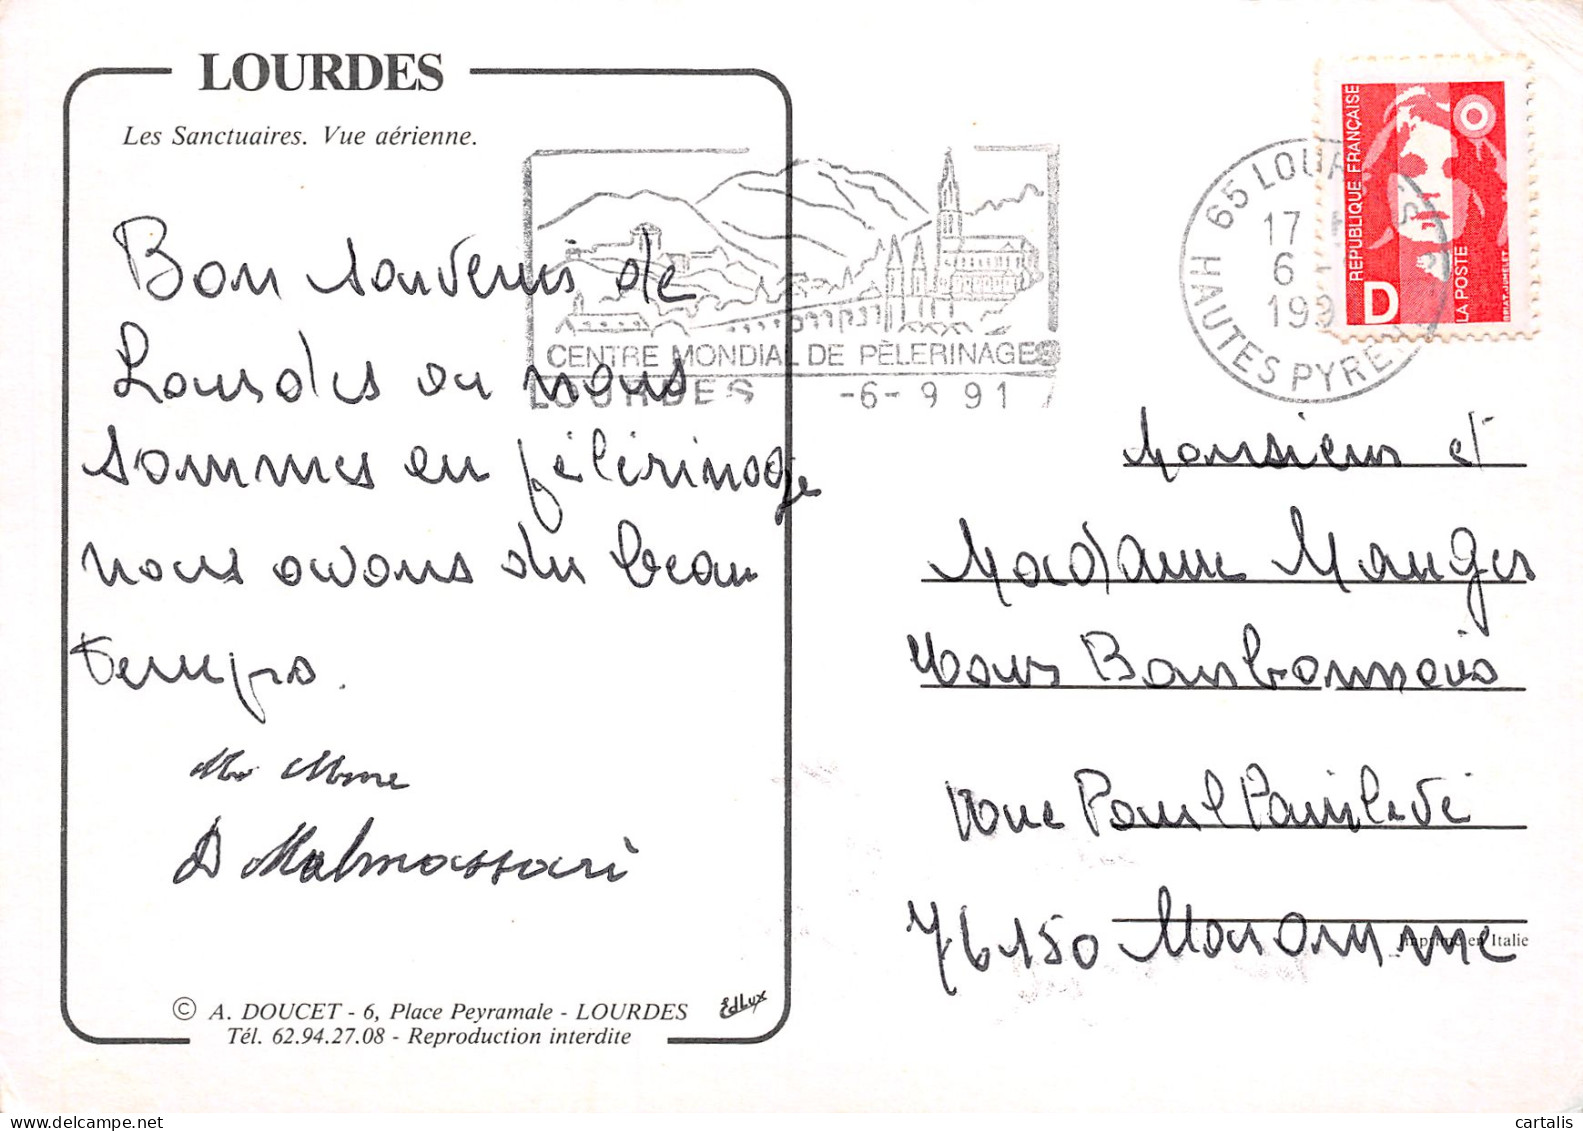 LOURDES
Les Sanctuaires. Vue aérienne.
Bon souvenir de
Lourdes ou nous
sommes en pélérinage
nous avons du beau
temps.
Mr Mme
D Malmassari
© A. DOUCET - 6, Place Peyramale - LOURDES
EdLux
Tél. 62.94.27.08 - Reproduction interdite
CENTRE MONDIAL DE PÈLERINAGES
LOURDES -6- 9 91
65 LOUR
17 H
6 -
199
HAUTES PYRÉ
RÉPUBLIQUE FRANÇAISE
D
LA POSTE
BRIAT-JUMELET
Monsieur et
Madame Mauger
Bourbonnais
rue Paul Painlevé
76150 Maromme
Imprimé en Italie
cartalis